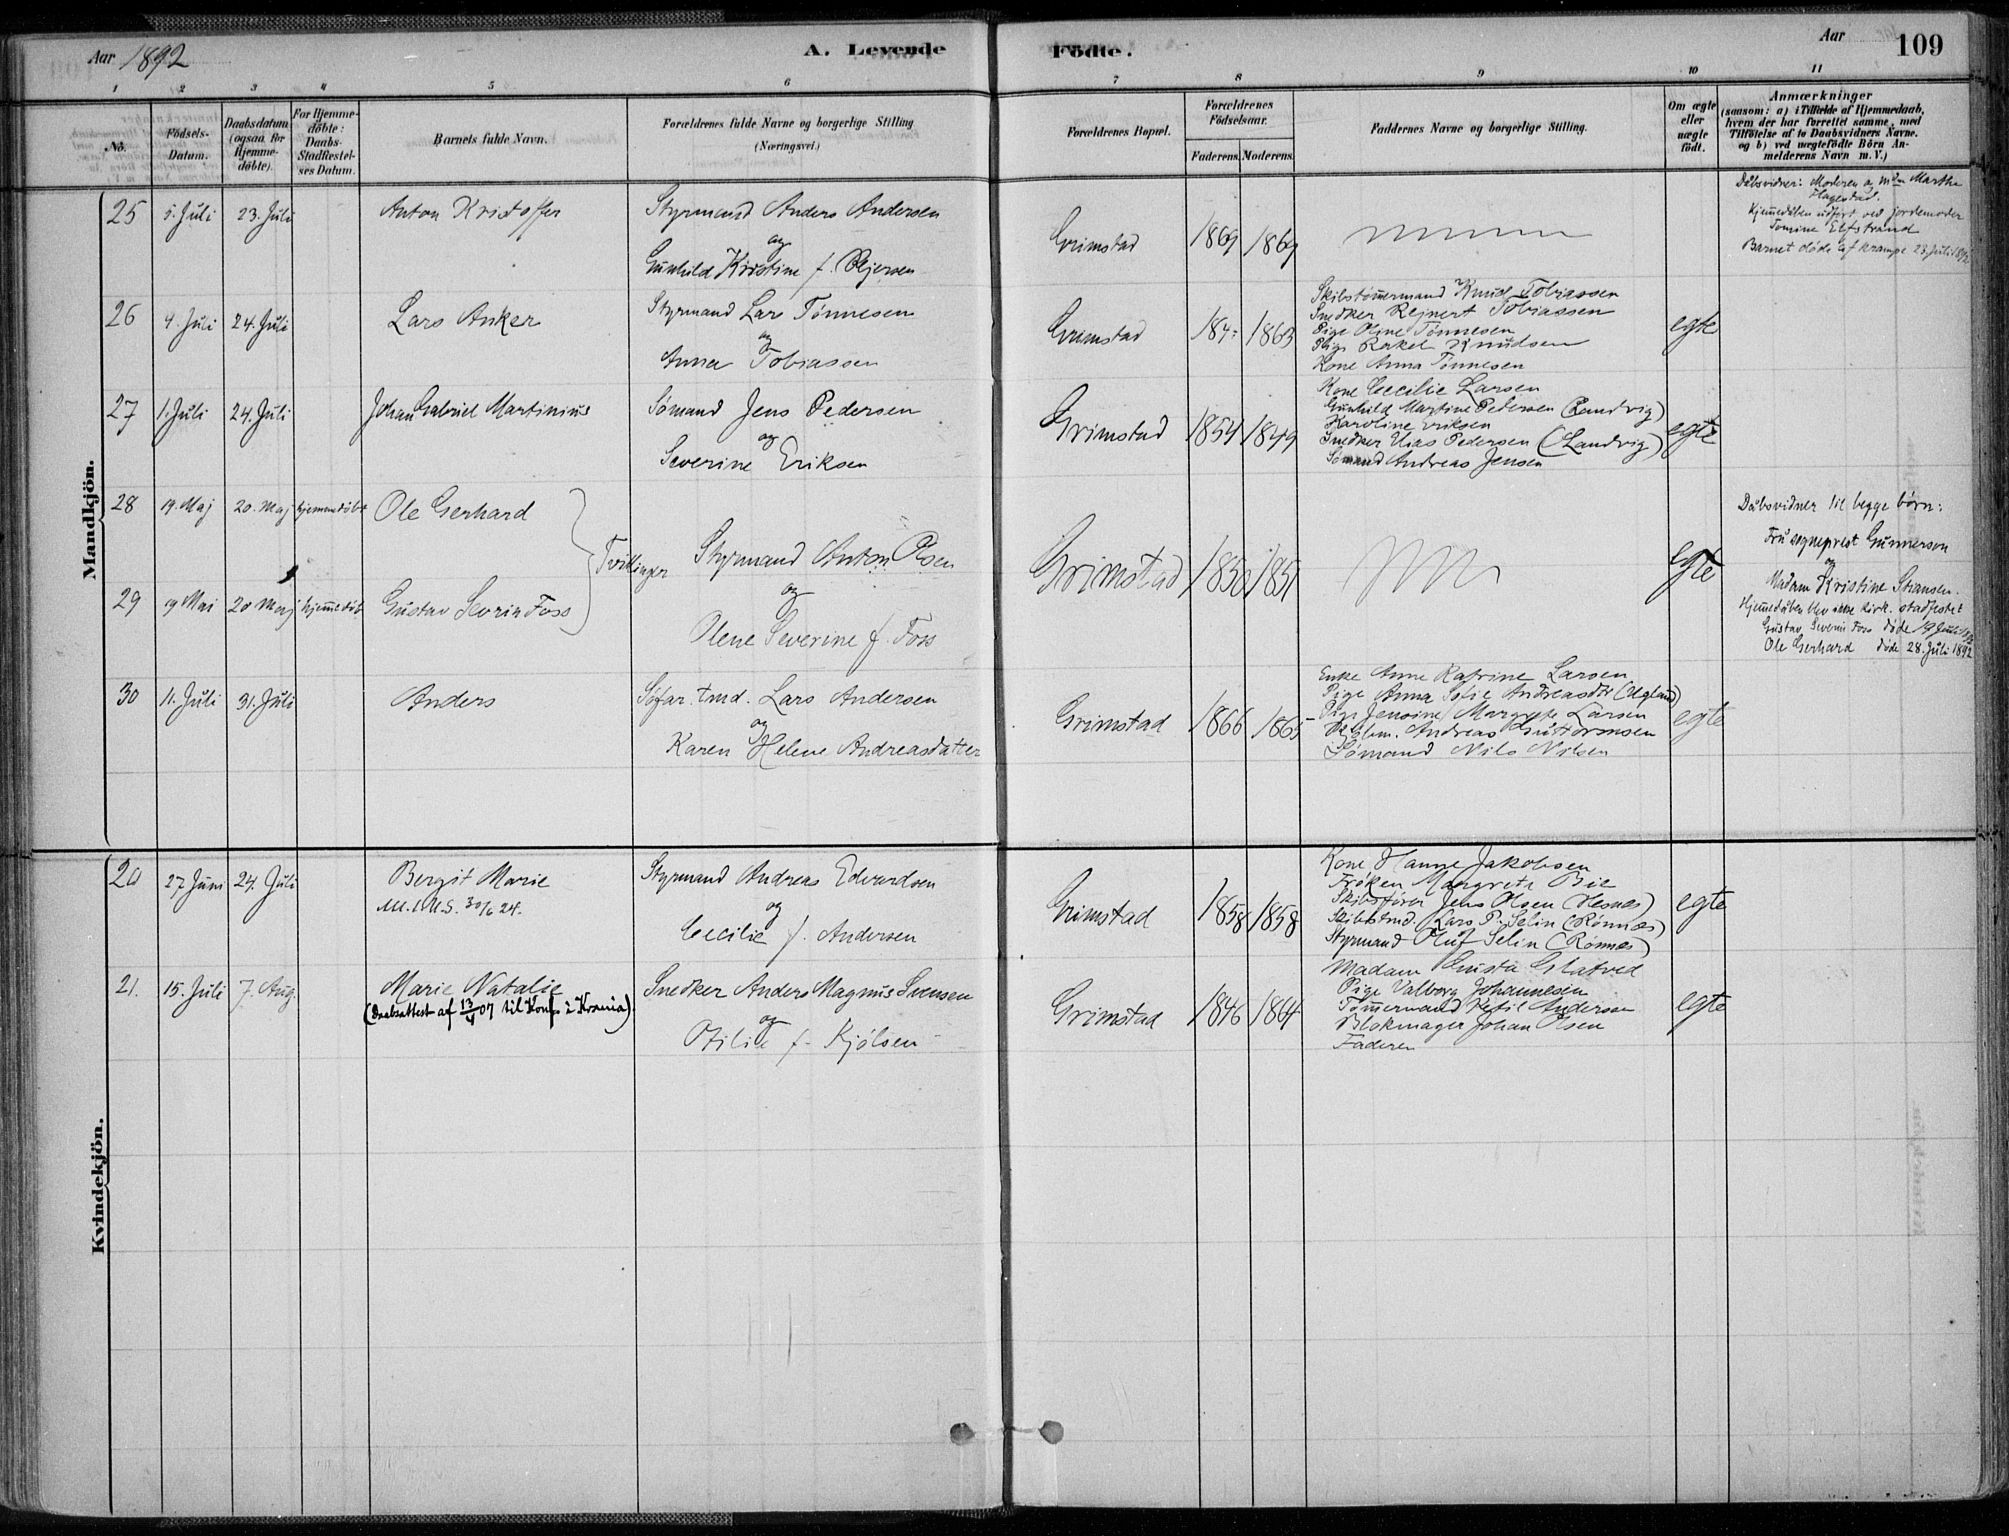 Aar 1892
A. Levende
Födte.
Aar
109
1 2 3 4 5 6 7 8 9 10 11
No.
Födsels-Datum.
Daabsdatum (ogsaa for Hjemme-döbte).
For Hjemme-döbte: Daabs-Stadfæstel-ses Datum.
Barnets fulde Navn.
Forældrenes fulde Navne og borgerlige Stilling
(Næringsvei.)
Forældrenes Bopæl.
Forældrenes Födselsaar.
Faderens. Moderens.
Faddernes Navne og borgerlige Stilling.
Om ægte eller uægte födt.
Anmærkninger
(saasom: a) i Tilfælde af Hjemmedaab, hvem der har forrettet samme, med Tilföielse af to Daabsvidners Navne. og b) ved uægtefödte Börn An-melderens Navn m. V.)
Mandkjön.
25 5. Juli 23. Juli Anton Kristoffer
Styrmand Anders Andersen
og
Gunhild Kristine f.
Grimstad 1869 1869
Dåbsvidner: Moderen og Mdm Marthe
Hagestad.
Hjemmedåben udført ved jordemoder
Elfstrand
Barnet døde af krampe 23. Juli 1892
26 4. Juli 24. Juli Lars Anker
Styrmand Lars Tönnesen
og
Anna Tobiassen
Grimstad 184- 1863
Skibstømmermand Knud Tobiassen
Snedker Rejnert Tobiassen
Pige Oline Tønnesen
Pige Rakel Knudsen
Kone Anna Tønnesen
egte
27 1. Juli 24. Juli Johan Gabriel Martinius
Sømand Jens Pedersen
og
Severine Eriksen
Grimstad 1854 1849
Kone Cecilie Larsen
Gunhild Martine Pedersen (Landvig)
Karoline Eriksen
Snedker Elias Pedersen (Landvig)
Sømand Andreas Jensen
egte
28 19. Maj 20. Maj hjemmedöbt Ole Gerhard
Tvillinger
Styrmand Anton Olsen
og
Olene Severine f. Foss
Grimstad 1850 1851
egte
29 19 Mai 20 Maj hjemmedöbt Gustav Sevrin Foss
Dåbsvidner til begge børn:
Fru sogneprest Gunnerson
og
Madam Kristine Stransen.
Hjemmedåben blev ikke kirk. stadfestet
Gustav Severin Foss døde 19 Juli 1892
Ole Gerhard døde 28. Juli 1892
30 11. Juli 31. Juli Anders
Søfar. tmd. Lars Andersen
og
Karen Helene Andreasdatter
Grimstad 1866 1865
Enke Anne Katrine Larsen
Pige Anna Sofie Andreasdtr (Ugland)
Pige Jensine Margrete Larsen
Andreas Guttormsen
Sømand Nils Nilsen
egte
Kvindekjön.
20 27 Juni 24. Juli Bergit Marie
30/6 24.
Styrmand Andreas Edvardsen
og
Cecilie f. Andersen
Grimstad 1858 1858
Kone Hanne Jakobsen
Frøken Margrete Bie
Skibsfører Jens Olsen (Hesnes)
Skibstmd. Lars P. Selin (Rønnes)
Styrmand Oluf Selin (Rønnes)
egte
21. 15. Juli 7. Aug. Marie Natalie
(Daabsattest af 13/4 07 til Konf. i Krania)
Snedker Anders Magnus Svensen
og
Otilie f. Kjölsen
Grimstad 1846 1864
Madam Gusta Glatved
Pige Valborg Johannesen
Tømmermand Ketil Anderssen
Blokmager Johan Olsen
Faderen
egte